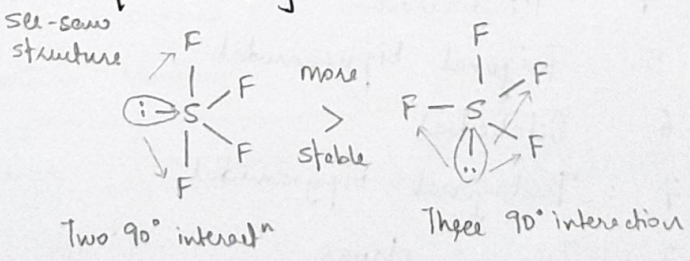 see-saw
structure
F
F
: S
F
F
more
>
stable
F
F
F — S
F
..
Two 90° interactⁿ
Three 90° interaction